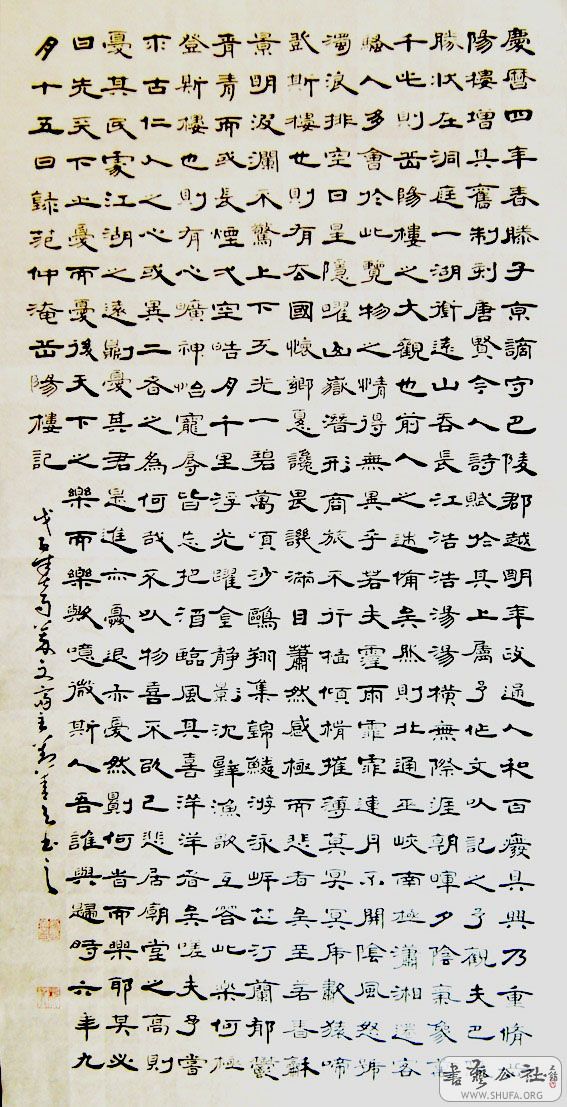 慶曆四年春滕子京謫守巴陵郡越明年政通人和百廢具興乃重脩岳
陽樓增其舊制刻唐賢今人詩賦於其上屬予作文以記之予觀夫巴
勝狀在洞庭一湖銜遠山吞長江浩浩湯湯橫無際涯朝暉夕陰氣象萬
千此則岳陽樓之大觀也前人之述備矣然則北通巫峽南極瀟湘遷客
騷人多會於此覽物之情得無異乎若夫霪雨霏霏連月不開陰風怒號
濁浪排空日星隱曜山嶽潛形商旅不行檣傾楫摧薄暮冥冥虎嘯猿啼
登斯樓也則有去國懷鄉憂讒畏譏滿目蕭然感極而悲者矣至若春和
景明波瀾不驚上下天光一碧萬頃沙鷗翔集錦鱗游泳岸芷汀蘭郁鬱
青青而或長煙一空皓月千里浮光躍金靜影沉璧漁歌互答此樂何極
登斯樓也則有心曠神怡寵辱皆忘把酒臨風其喜洋洋者矣嗟夫予嘗
求古仁人之心或異二者之為何哉不以物喜不以己悲居廟堂之高則
憂其民處江湖之遠則憂其君是進亦憂退亦憂然則何時而樂耶其必
曰先天下之憂而憂後天下之樂而樂歟噫微斯人吾誰與歸時六年九
月十五日錄范仲淹岳陽樓記
書藝公社
WWW.SHUFA.ORG